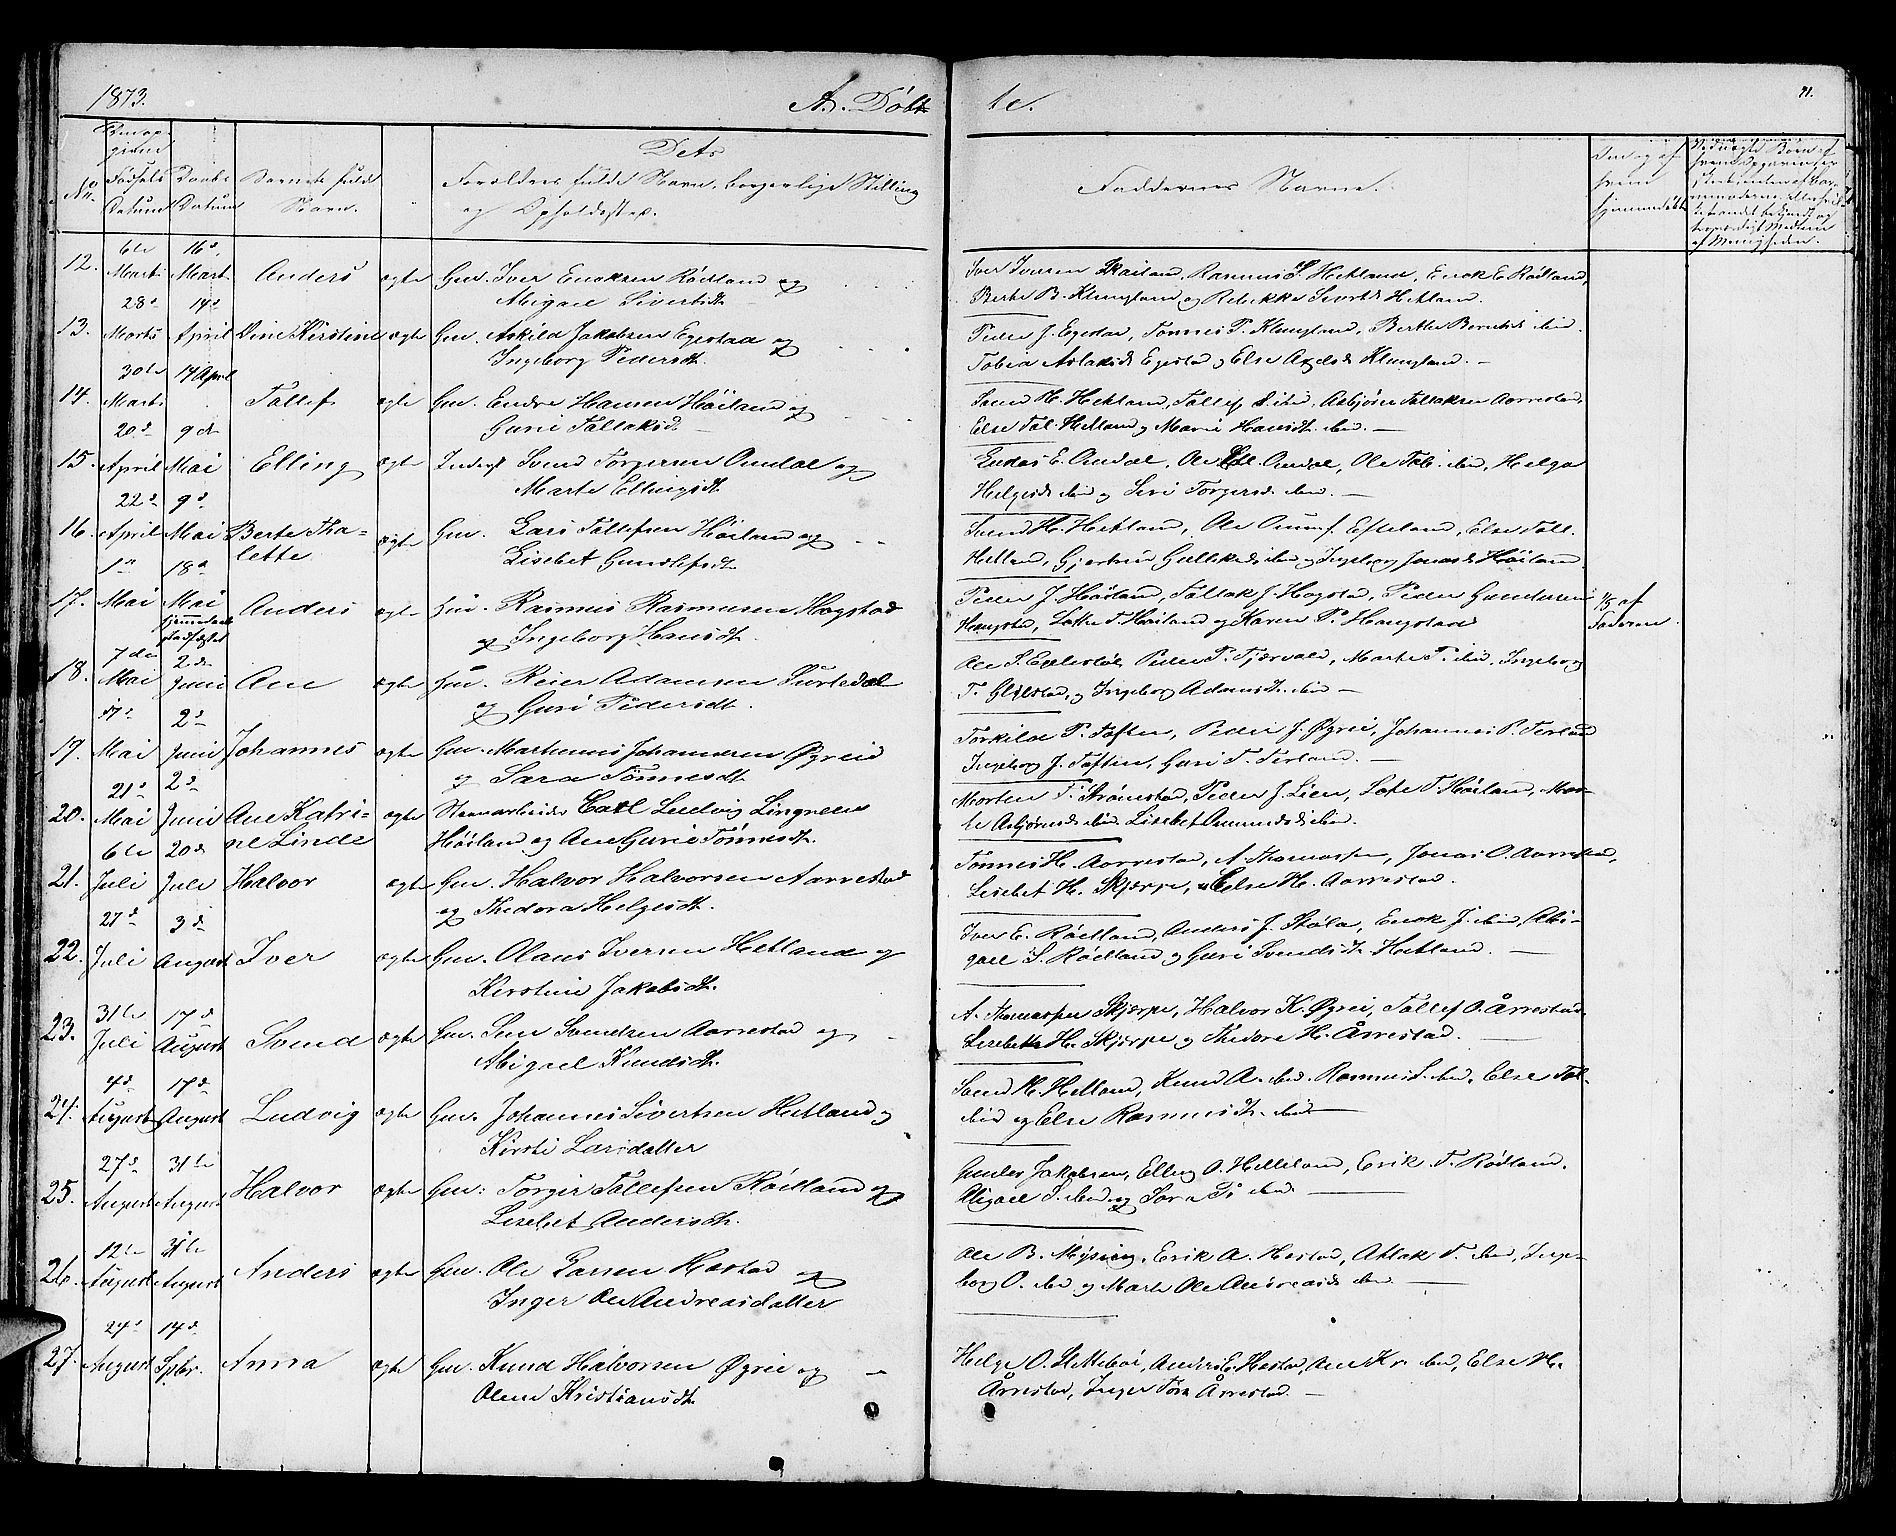 1873.
A. Døbte.
91.
Dets
No.
Fødsels Datum
Daabs Datum
Barnets fulde Navn.
Forældres fulde Navn, borgerlige Stilling
og Opholdssted.
Faddernes Navne.
12. 6te Marts 16d. Mart. Anders ægte Gm. Iver Eriksen Rødland og
Abigael Sivertsdt.
Iver Iversen Skailand, Rasmus S. Hetland, Erik E. Rødland,
Berte B. Klungland og Rebekka Sivertsd. Hetland.
13. 28d Marts 14d April Kirstine ægte Gm. Askild Jakobsen Egestad og
Ingeborg Pedersdt.
Peder J. Egestad, Tønnes P. Klungland, Berthe Berntsd. ibid.
Tobia Aslaksd. Egestad og Else Axelsd. Klungland. —
14. 30te Marts 14 April Tollef ægte Gm. Endre Hansen Høiland og
Guri Tollaksdt. —
Svend H. Hetland, Tollef S. ibid, Asbjørn Tollaksen Aarrestad,
Else Tol. Hetland og Marie Hansdt. ibid. —
15. 20d April 9de Mai Elling ægte Inderst Svend Torgersen Omdal og
Marte Ellingsdt.
Endas E. Omdal, Ole Omdal, Ole ibid, Helga
Helgesd. ibid og Siri Torgersd. ibid. —
16. 22d April 9d. Mai Berte Thalette ægte Gm. Lars Tollefsen Høiland og
Lisebet Gundlefsdt.
Svend H. Hetland, Ole Efteland, Else Toll.
Hetland, ibid og Ingeborg Jonasd. Høiland
17. 1st Mai 18d Mai Hjemmedaab stadfæstet Anders ægte Gm. Rasmus Rasmussen Hogstad
og Ingeborg Hansdt.
Peder J. Høiland, Tollak J. Hogstad, Peder Gundersen
Haugstad, Lotte T. Høiland og Karen P. Haugstad
1/5 af
Faderen.
18. 7de Mai 2de Juni Ane ægte Gm. Reier Adamsen Surtedal
og Guri Pedersdt.
Ole S. Eggestøl, Peder P. Tjørvald, Marte T. ibid, Ingeborg
T. og Ingeborg Adamsdt. ibid —
19. Mai 2d Juni Johannes ægte Gm. Martinus Johannesen Øgreid
og Sara Tønnesdt.
Torkild P. Toften, Peder J. Øgrei, Johannes P. Terland
Ingeborg J. Toften, Guri T. Terland. —
20. 21d Mai 2d Juni Ane Katrine Linde ægte Carl Ludvig Lingreen
Høiland og Ane Gurie Tønnesdt.
Morten T. Strømstad, Peder J. Lien, Lotte T. Høiland, Marte
Asbjørnsd. ibid Lisebet Amundsd. ibid.
21. 6te Juli 20d Juli Halvor ægte Gm. Halvor Halvorsen Aarrestad
og Thedora Helgesdt.
Tønnes H. Aarrestad, A. Thomassen, Jonas O. Aarrestad,
Lisebet H. Skjerpe, Else H. Aarrestad.
22. 27d Juli 3d August Iver ægte Gm. Olaus Iversen Hetland og
Kirstine Jakobsdt.
Iver E. Rødland, Anders J. Støla, Enok J. ibid, Abigael
S. Rødland og Guri Svendsdt. Hetland. —
23. 31te Juli 17d August Svend ægte Gm. Sem Svendsen Aarrestad og
Abigael Knudsdt.
A. Thomassen Skjerpe, Halvor K. Øgrei, Tollef O. Årrestad
Lisebet H. Skjerpe og Thedora H. Årrestad. —
24. 4d. August 17d August Ludvig ægte Gm. Johannes Sivertsen Hetland og
Kirsti Larsdatter
Svend H. Hetland, Knud A. ibid. Rasmus S. ibid, Else Tol.
ibid og Else Rasmusdt. ibid —
25. 27d August 31te August Halvor ægte Gm. Torger Tollefsen Rødland og
Lisebet Andersdt.
Jakobsen, Elling O. Helleland, Erik T. Rødland.
Abigael S. ibid og Sara ibid. —
26. 12te August 31te August Anders ægte Gm. Ole Larsen Hæstad og
Inger Ane Andreasdatter
Ole B. Mysing, Erik A. Hæstad, Aslak T. ibid, Ingeborg
O. ibid og Marte Andreasd. ibid —
27. 24d August 14d Sptbr. Anna ægte Gm. Knud Halvorsen Øgrei og
Olene Kristiansdt.
Helge O. Slettebøe, Anders E. Hæstad, Ane Kr. ibid, Else H.
Årrestad, Inger Årrestad. —